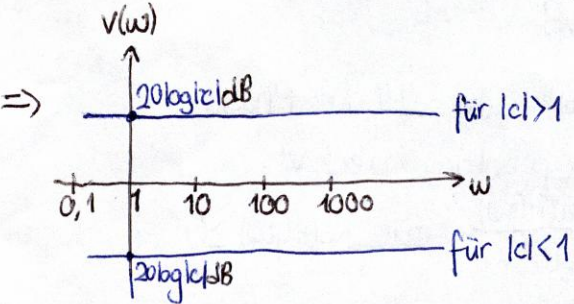 v(ω)
⇒
20log|c|dB
für |c|>1
ω
0,1 1 10 100 1000
für |c|<1
20log|c|dB